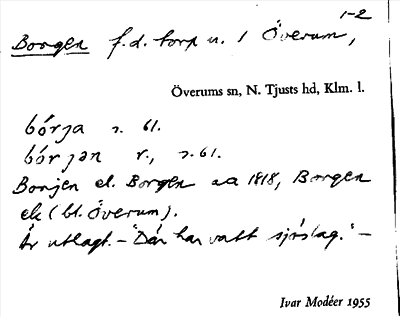 1-2
Borgen f.d. torp u. 1 Överum,
Överums sn, N. Tjusts hd, Klm. l.
bórja s. 61.
bórjən r., s. 61.
Borjen el. Borgen aa 1818, Borgen
ek (bl. Överum).
Är utlagt. – "Där har vatt sjöslag." –
Ivar Modéer 1955